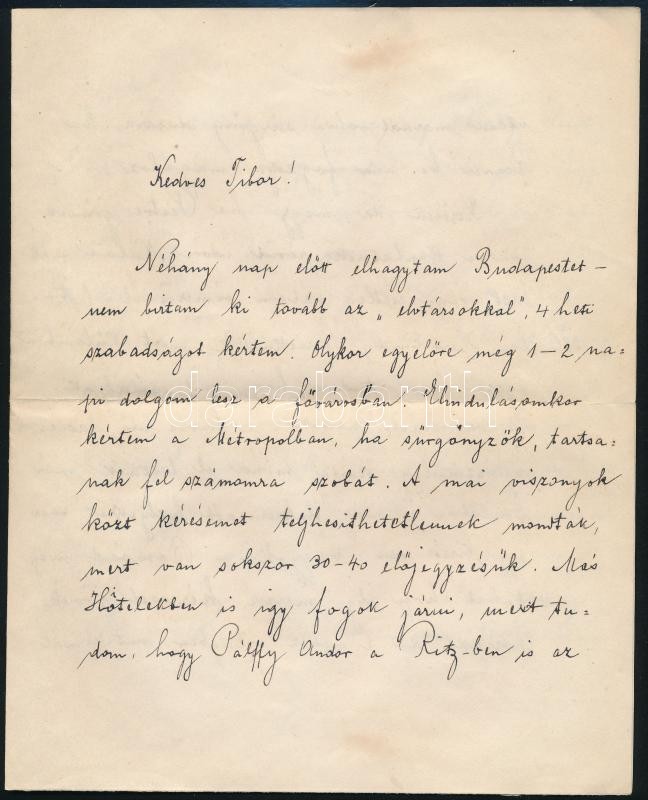 Kedves Tibor!
Néhány nap előtt elhagytam Budapestet –
nem birtam ki tovább az „elvtársokkal", 4 heti
szabadságot kértem. Olykor egyelőre még 1–2 na=
pi dolgom lesz a fővárosban. Elindulásomkor
kértem a Métropolban, ha sürgönyzök, tartsa=
nak fel számomra szobát. A mai viszonyok
közt kérésemet teljhesithetetlennek mondták,
mert van sokszor 30–40 előjegyzésük. Más
Hôtelekben is igy fogok járni, mert tu=
dom, hogy Pálffy Andor a Ritz-ben is az
darabanth